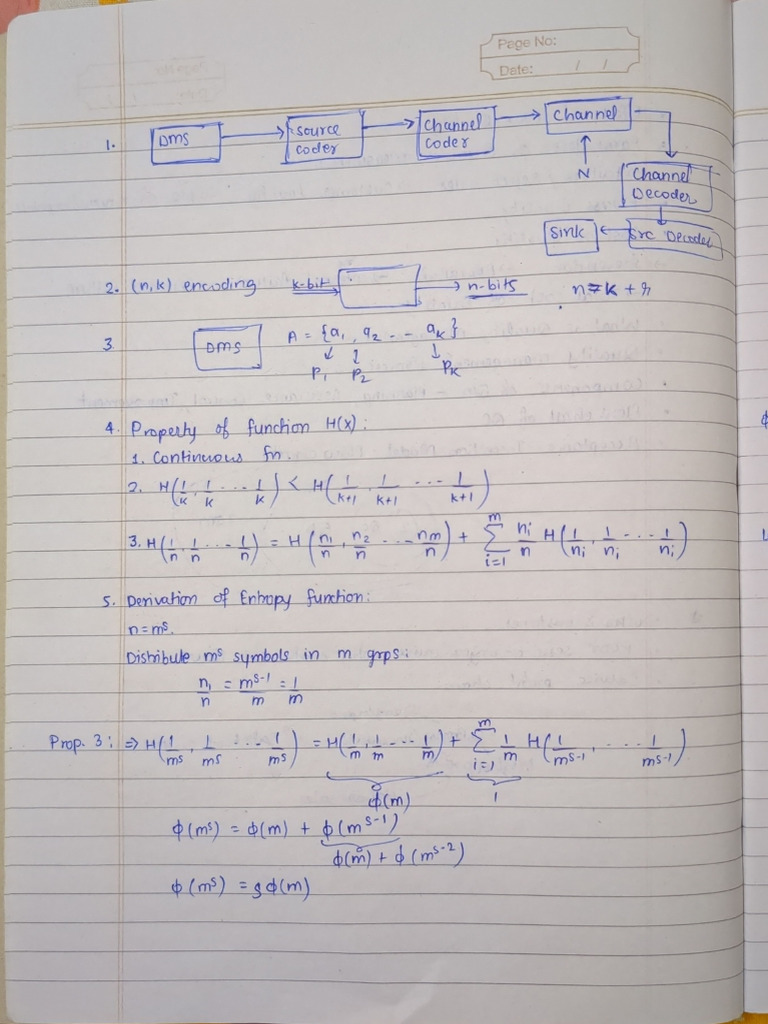 Page No:
Date: / /
1. DMS → source coder → Channel coder → Channel
N
Channel Decoder
Sink ← Src Decoder
2. (n,k) encoding k-bit → → n-bits n = k + r
3. DMS A = {a₁, a₂ -- aₖ}
P₁ P₂ Pₖ
4. Property of function H(x):
1. Continuous fn.
2. H(1/k, 1/k ... 1/k) < H(1/k+1, 1/k+1 ... 1/k+1)
3. H(1/n, 1/n ... 1/n) = H(n₁/n, n₂/n ... nm/n) + Σ_{i=1}^{m} nᵢ/n H(1/nᵢ, 1/nᵢ ... 1/nᵢ)
5. Derivation of Entropy function:
n = mˢ.
Distribute mˢ symbols in m grps:
n₁/n = mˢ⁻¹/m = 1/m
Prop. 3: ⇒ H(1/mˢ, 1/mˢ ... 1/mˢ) = H(1/m, 1/m ... 1/m) + Σ_{i=1}^{m} 1/m H(1/mˢ⁻¹, ... 1/mˢ⁻¹)
ϕ(m) 1
ϕ(mˢ) = ϕ(m) + ϕ(mˢ⁻¹)
ϕ(m) + ϕ(mˢ⁻²)
ϕ(mˢ) = sϕ(m)